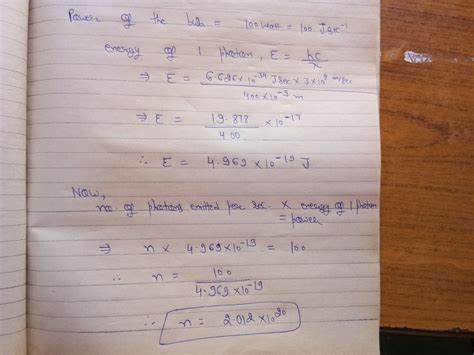 Power of the bulb = 100 watt = 100 J sec⁻¹
energy of 1 photon, E = hc/λ
⇒ E = 6.626 × 10⁻³⁴ J sec × 3 × 10⁸ m/sec / 400 × 10⁻⁹ m
⇒ E = 19.878/400 × 10⁻¹⁷
∴ E = 4.969 × 10⁻¹⁹ J
NOW,
no. of photons emitted per sec. × energy of 1 photon
= power
⇒ n × 4.969 × 10⁻¹⁹ = 100
∴ n = 100 / 4.969 × 10⁻¹⁹
∴ n = 2.012 × 10²⁰